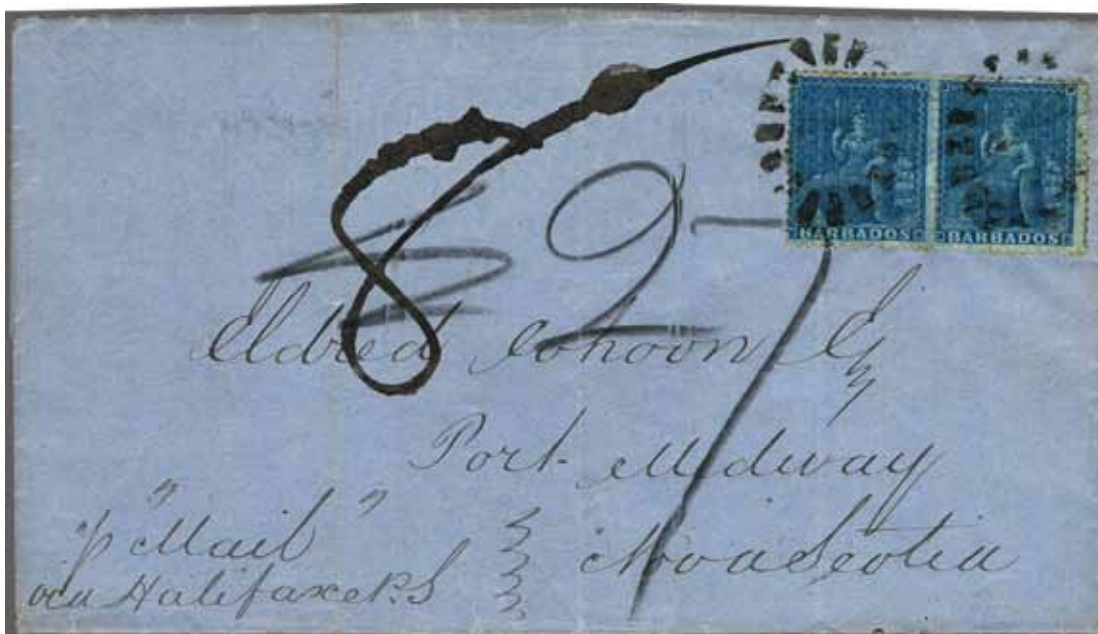 BARBADOS BARBADOS
8 2
Eldred Cohoon Esq
Port Medway
Nova Scotia
"p Mail"
via Halifax N.S